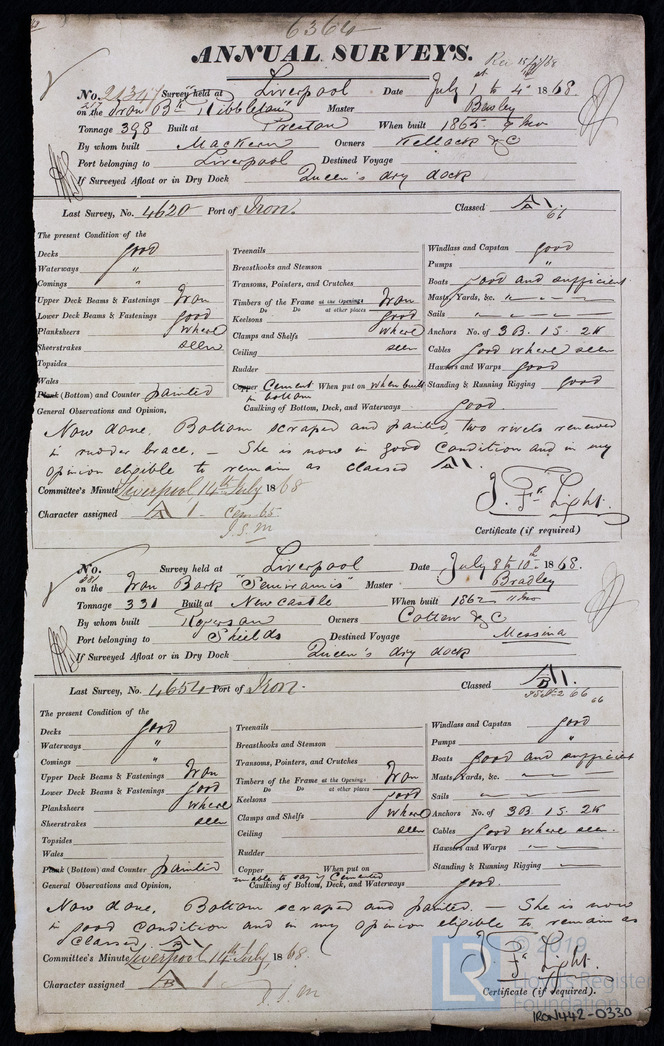 6364
ANNUAL SURVEYS.
No. 2134 Survey held at Liverpool Date July 1st to 4th 1868
on the Iron Bk "Ribbleton" Master Bewley
Tonnage 398 Built at Preston When built 1865
By whom built Mackern Owners & Co
Port belonging to Liverpool Destined Voyage
If Surveyed Afloat or in Dry Dock Queen's dry dock
Last Survey, No. 4620 Port of Iron. Classed A 1.
66
The present Condition of the
Decks good
Waterways "
Comings "
Upper Deck Beams & Fastenings Iron
Lower Deck Beams & Fastenings good
Planksheers where
Sheerstrakes seen
Topsides
Wales
Plank (Bottom) and Counter painted
Treenails
Breasthooks and Stemson
Transoms, Pointers, and Crutches
Timbers of the Frame at the Openings Iron
Do Do at other places
Keelsons good
Clamps and Shelfs where
Ceiling seen
Rudder
Copper Cement When put on when built
in bottom
Caulking of Bottom, Deck, and Waterways good
Windlass and Capstan good
Pumps "
Boats good and sufficient
Masts, Yards, &c. " — — —
Sails " — — —
Anchors No. of 3B. 1S. 2K
Cables good where seen
Hawsers and Warps good
Standing & Running Rigging good
General Observations and Opinion,
Now done, Bottom scraped and painted two rivets renewed
in rudder brace. — She is now in good condition and in my
opinion eligible to remain as classed A 1.
Committee's Minute Liverpool, 14th July 1868
Character assigned A 1 Cem 65
J.S.M
J. Fk Light.
Certificate (if required)
No. Survey held at Liverpool Date July 8 to 10th 1868.
on the Iron Bark "Semiramis" Master Bradley
Tonnage 331 Built at Newcastle When built 1862 11 mo
By whom built Rogerson Owners Cotten & Co
Port belonging to Shields Destined Voyage Messina
If Surveyed Afloat or in Dry Dock Queen's dry dock
Last Survey, No. 4654 Port of Iron. Classed A 1.
B
66
The present Condition of the
Decks good
Waterways "
Comings "
Upper Deck Beams & Fastenings Iron
Lower Deck Beams & Fastenings good
Planksheers where
Sheerstrakes seen
Topsides
Wales
Plank (Bottom) and Counter painted
Treenails
Breasthooks and Stemson
Transoms, Pointers, and Crutches
Timbers of the Frame at the Openings Iron
Do Do at other places
Keelsons good
Clamps and Shelfs where
Ceiling seen
Rudder
Copper When put on
unable to say if Cemented
Caulking of Bottom, Deck, and Waterways good.
Windlass and Capstan good
Pumps "
Boats good and sufficient
Masts, Yards, &c. " — —
Sails " — —
Anchors No. of 3B 1S. 2K
Cables good where seen.
Hawsers and Warps " — —
Standing & Running Rigging —
General Observations and Opinion,
Now done, Bottom scraped and painted. — She is now
in good condition and in my opinion eligible to remain as
classed A 1
B
Committee's Minute Liverpool, 14th July 1868.
Character assigned A 1
B
J.S.M
J. Fk Light.
Certificate (if required).
LR © 2019
Lloyd's Register
Foundation
IRON442-0330